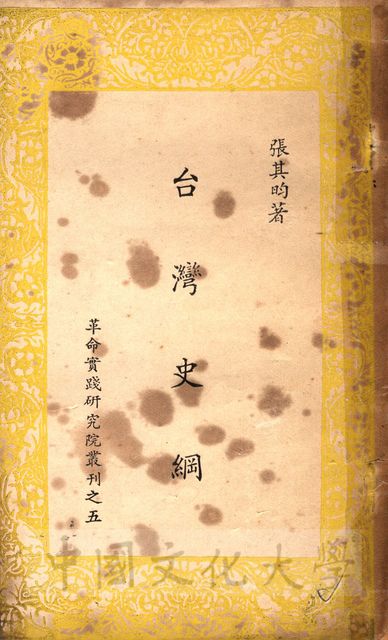 張其昀著
台灣史綱
革命實踐研究院叢刊之五
中國文化大學